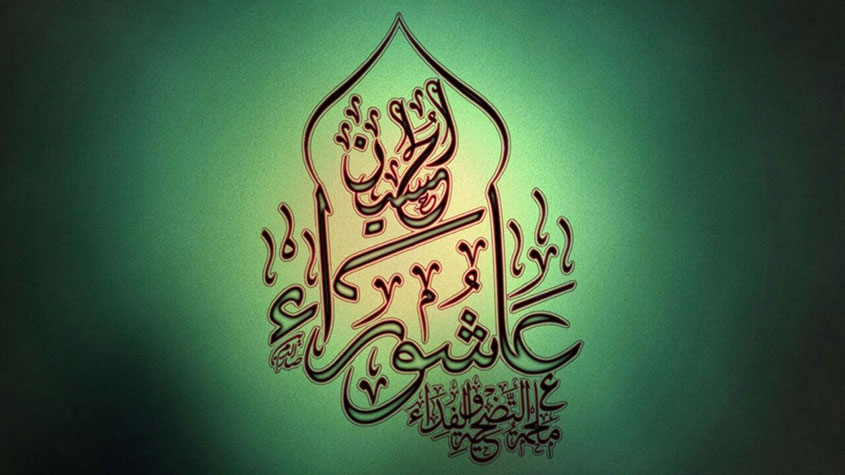 الحُسين
عَاشُوراء
ملحمة التَّضحية والفِدَاء